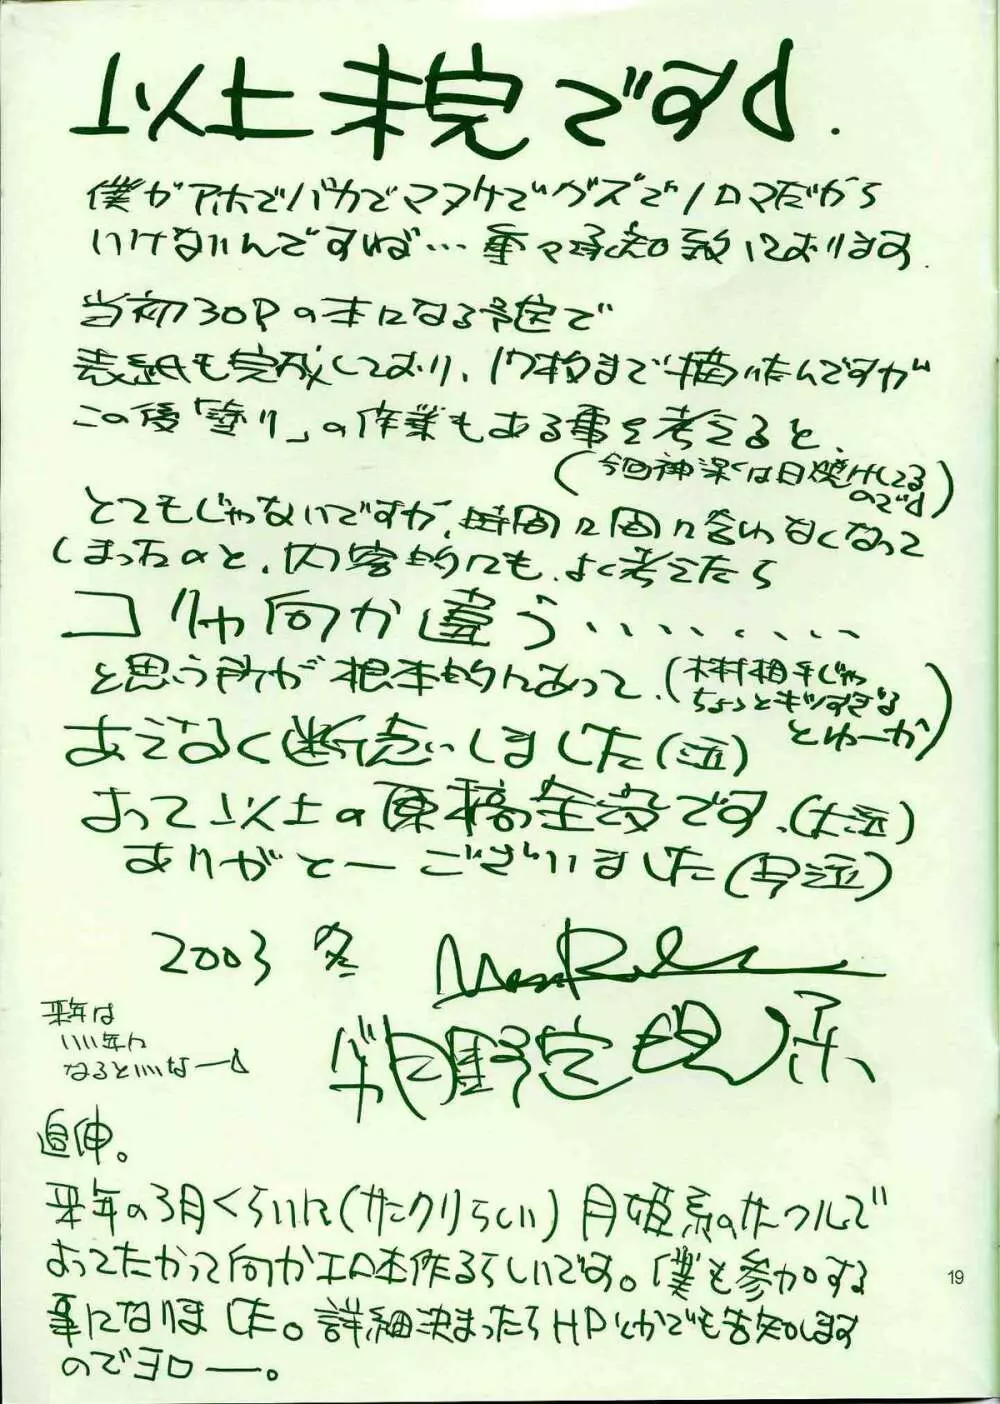 以上未完ですd.
僕がアホでバカでマヌケでグズでノロマだから
いけないんですねば…重々承知致しております.
当初30Pの本になる予定で
表紙も完成しており、17枚まで描いたんですが
この後「塗り」の作業もある事を考えると、
(今回神深くは日焼けしてる
のでd)
とてもじゃないですが、時間に間に合わなくなって
しまったのと、内容的にも、よく考えたら
コリャ何か違う………
と思う所が根本的にあって、(木村相手じゃ
ちょっとギツすぎる
とゆーか)
あえなく断念しました(泣)
よって以上の原稿全没です、(大泣)
ありがとーございました(号泣)
2003 冬
来年は
いい年に
なるといいなーd
追伸。
来年の3月くらいに(サンクリらしい)月姫系のサークルで
よってたかって何かエロ本作るらしいです。僕も参加する
事になりました。詳細決まったらHPとかでも告知します
のでヨロー。
19